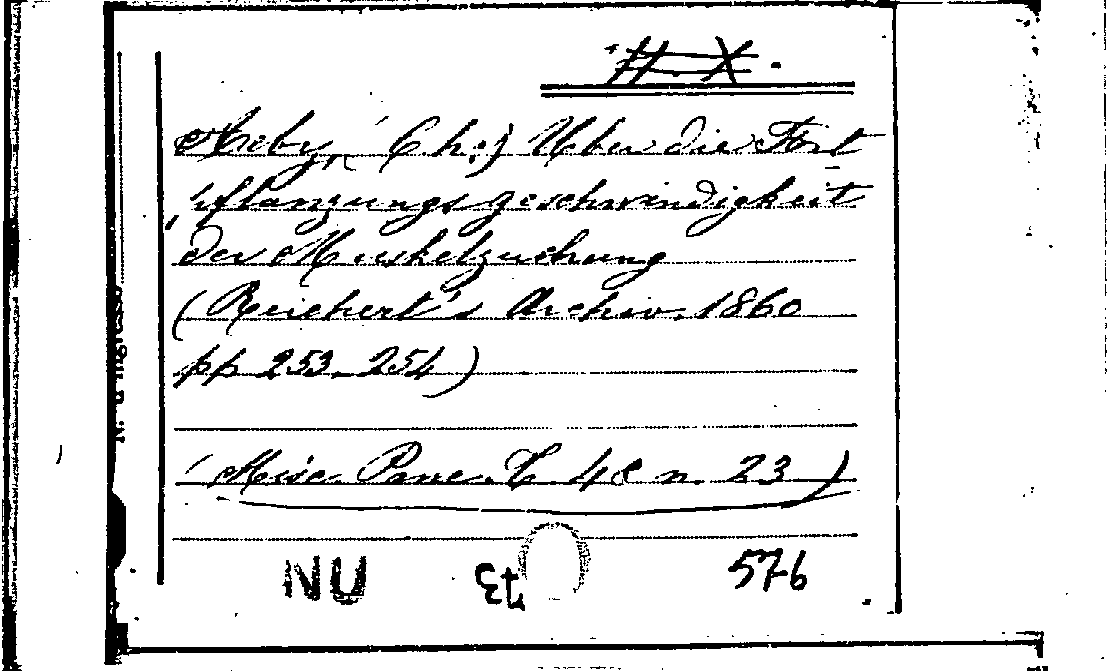 H. X.
Aeby, (Ch:) Uber die Fort
pflanzungsgeschwindigkeit
der Muskelzuckung
(Reichert's Archiv. 1860
pp 253-254)
(Misc. Panc. T. 48 n. 23)
NU 576